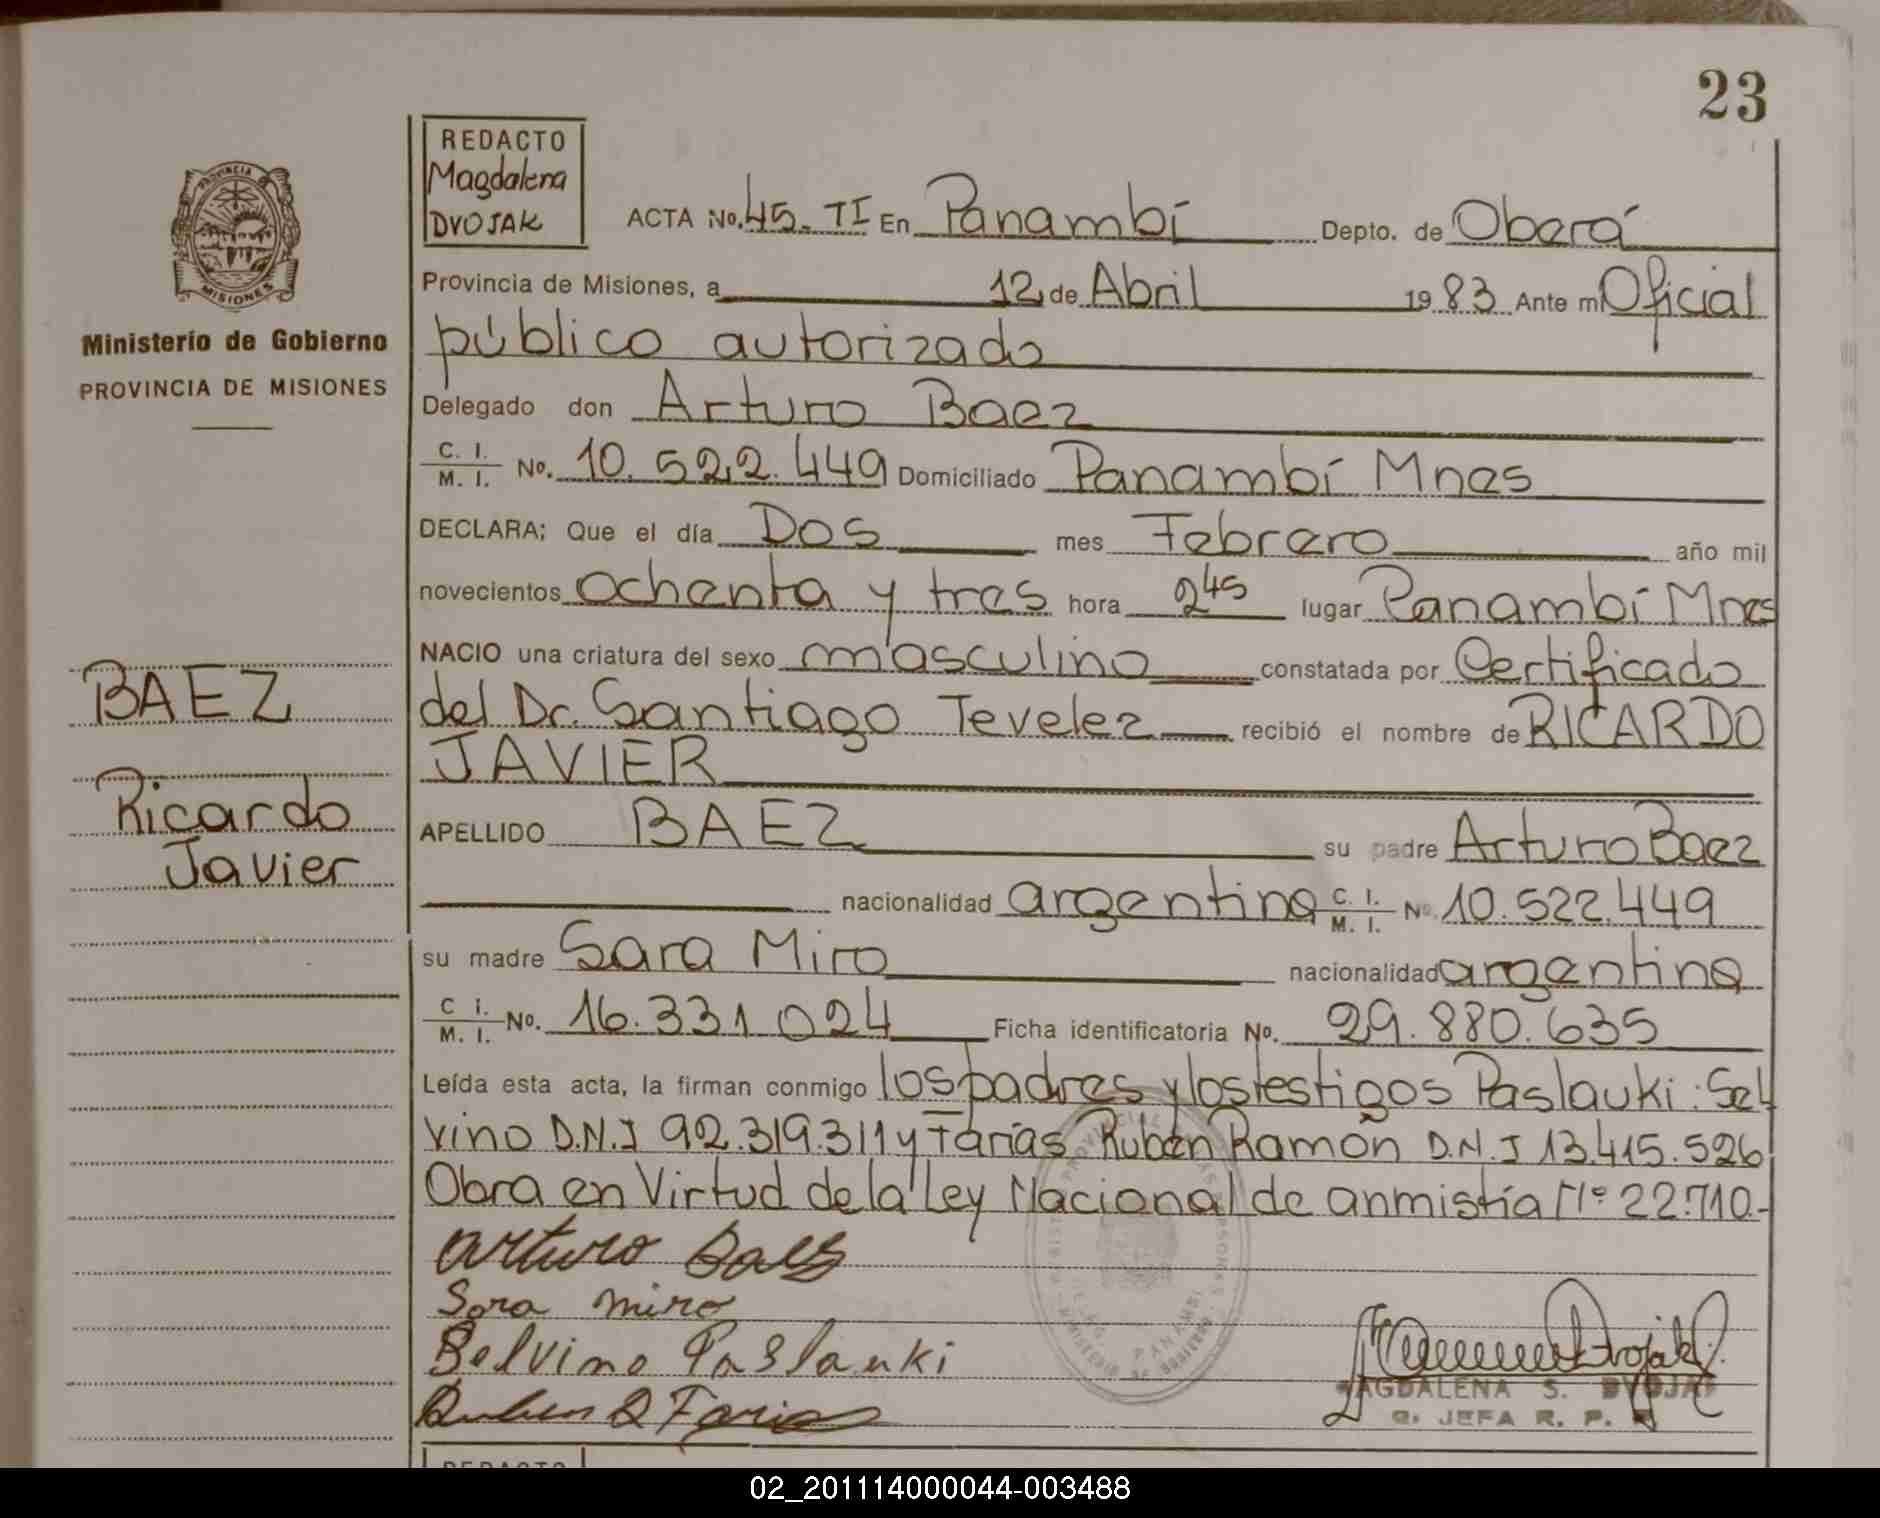 23
REDACTO
Magdalena
DVOJAK
ACTA No. 45. TI En Panambí Depto. de Oberá
Provincia de Misiones, a 12 de Abril 1983 Ante mi Oficial
público autorizado
Delegado don Arturo Baez
C. I. M. I. No. 10.522.449 Domiciliado Panambí Mnes
DECLARA: Que el día Dos mes Febrero año mil
novecientos ochenta y tres hora 2 45 lugar Panambí Mnes
NACIO una criatura del sexo masculino constatada por Certificado
del Dr. Santiago Tevelez recibió el nombre de RICARDO
JAVIER
APELLIDO BAEZ su padre Arturo Baez
nacionalidad argentina C. I. M. I. No. 10.522.449
su madre Sara Miro nacionalidad argentina
C. I. M. I. No. 16.331.024 Ficha identificatoria No. 29.880.635
Leída esta acta, la firman conmigo los padres y los testigos Paslauki: Sel
vino D.N.I 92.319.311 y Farías Rubén Ramón D.N.I 13.415.526
Obra en Virtud de la Ley Nacional de anmistía N° 22.710.-
Arturo Baes
Sara miro
Selvino Paslauki
Ruben R Farias
MAGDALENA S. DVOJAK
JEFA R. P.
PROVINCIA
MISIONES
Ministerio de Gobierno
PROVINCIA DE MISIONES
BAEZ
Ricardo
Javier
PANAMBI
REDACTO
02_201114000044-003488